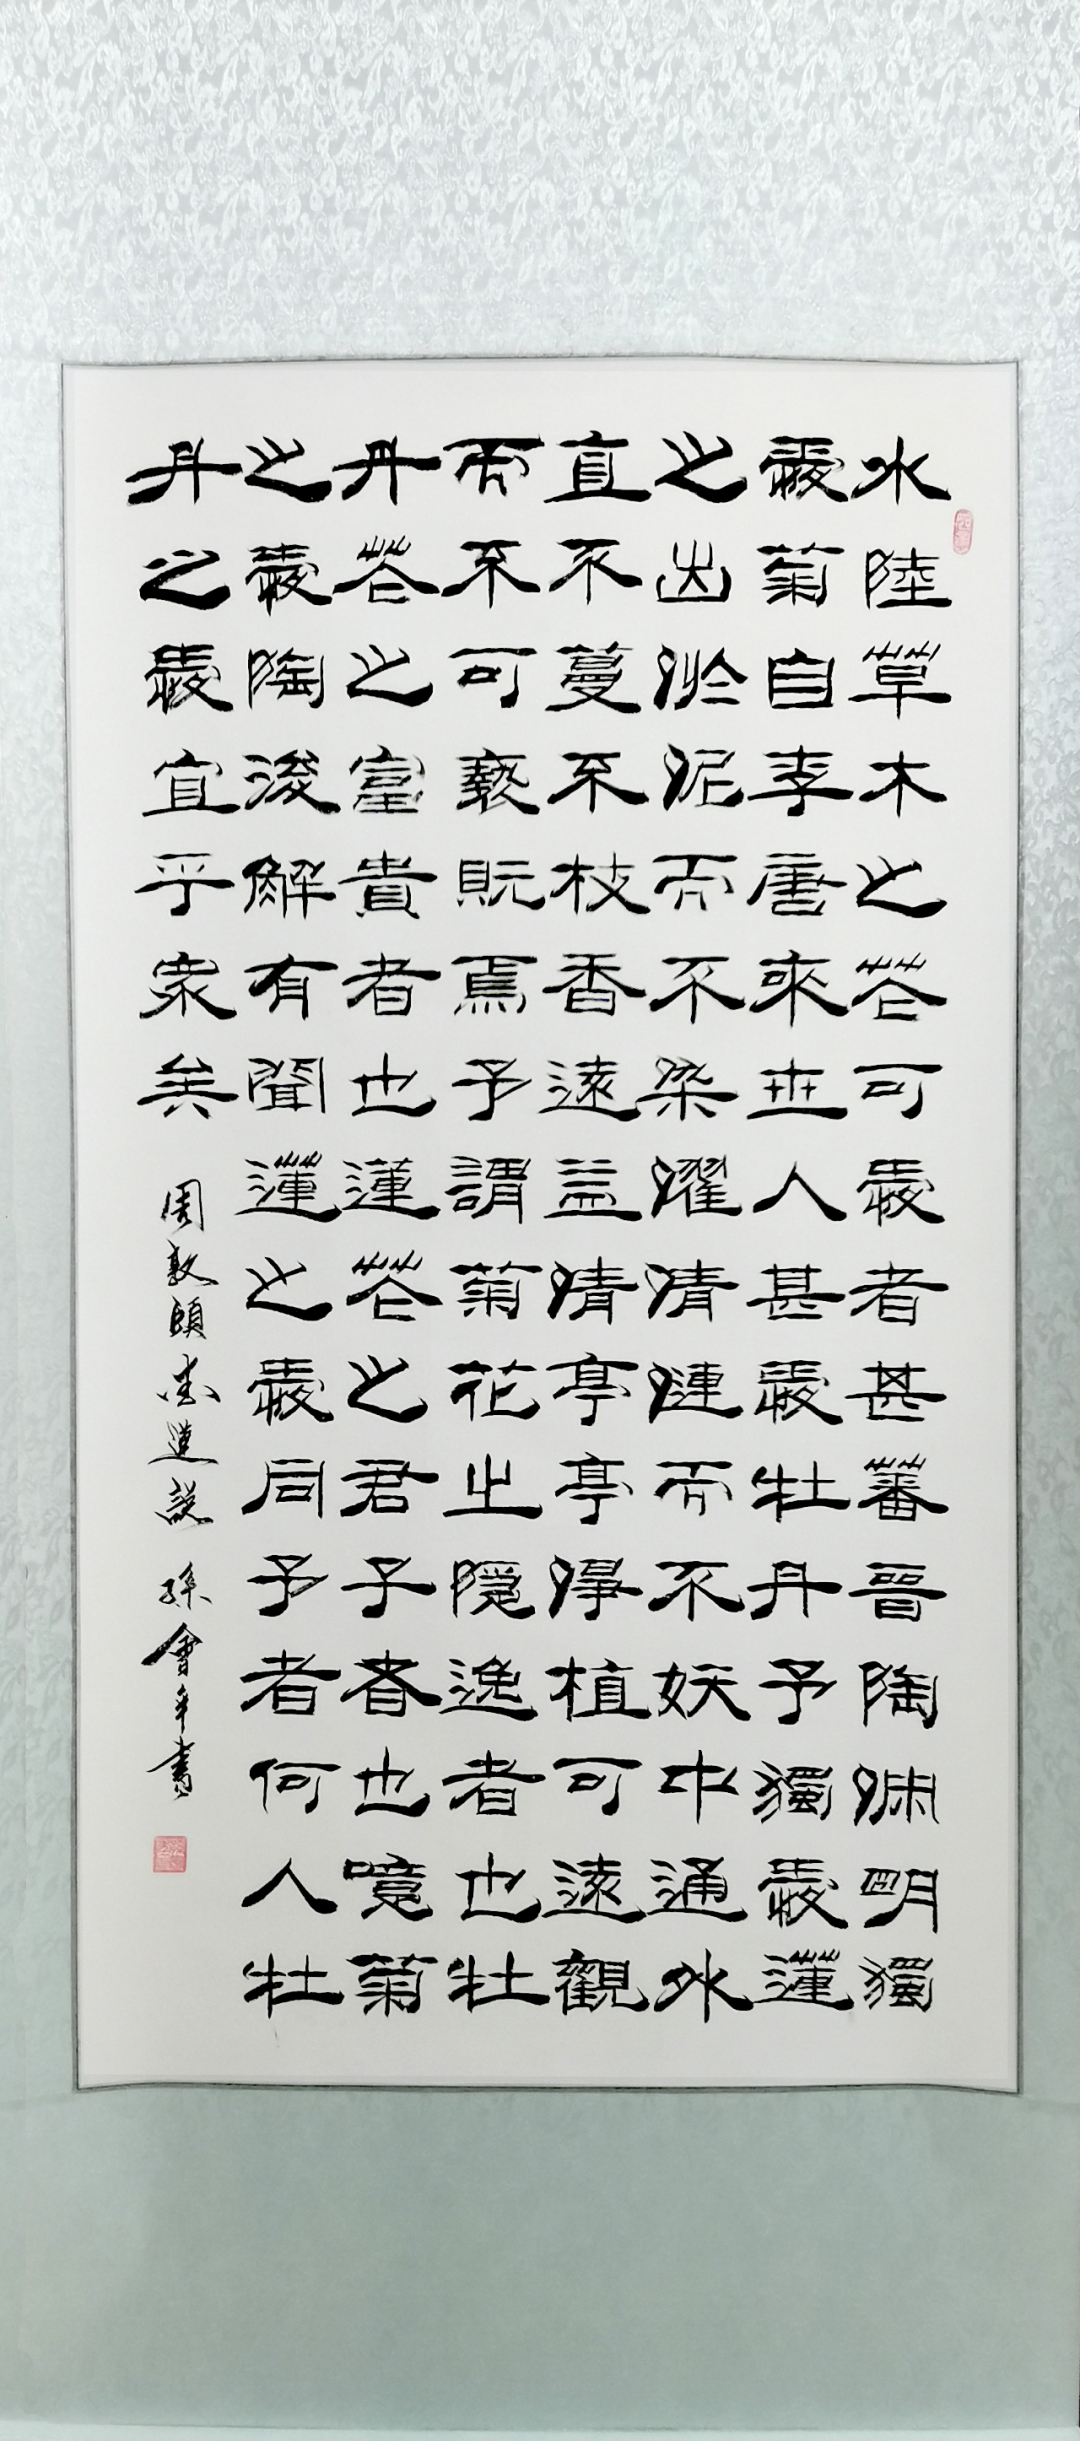 水陸草木之花可愛者甚蕃晉陶淵明獨
愛菊自李唐來世人甚愛牡丹予獨愛蓮
之出淤泥而不染濯清漣而不妖中通外
直不蔓不枝香遠益清亭亭淨植可遠觀
而不可褻翫焉予謂菊花之隱逸者也牡
丹花之富貴者也蓮花之君子者也噫菊
之愛陶後鮮有聞蓮之愛同予者何人牡
丹之愛宜乎眾矣
周敦頤愛蓮說 孫會年書